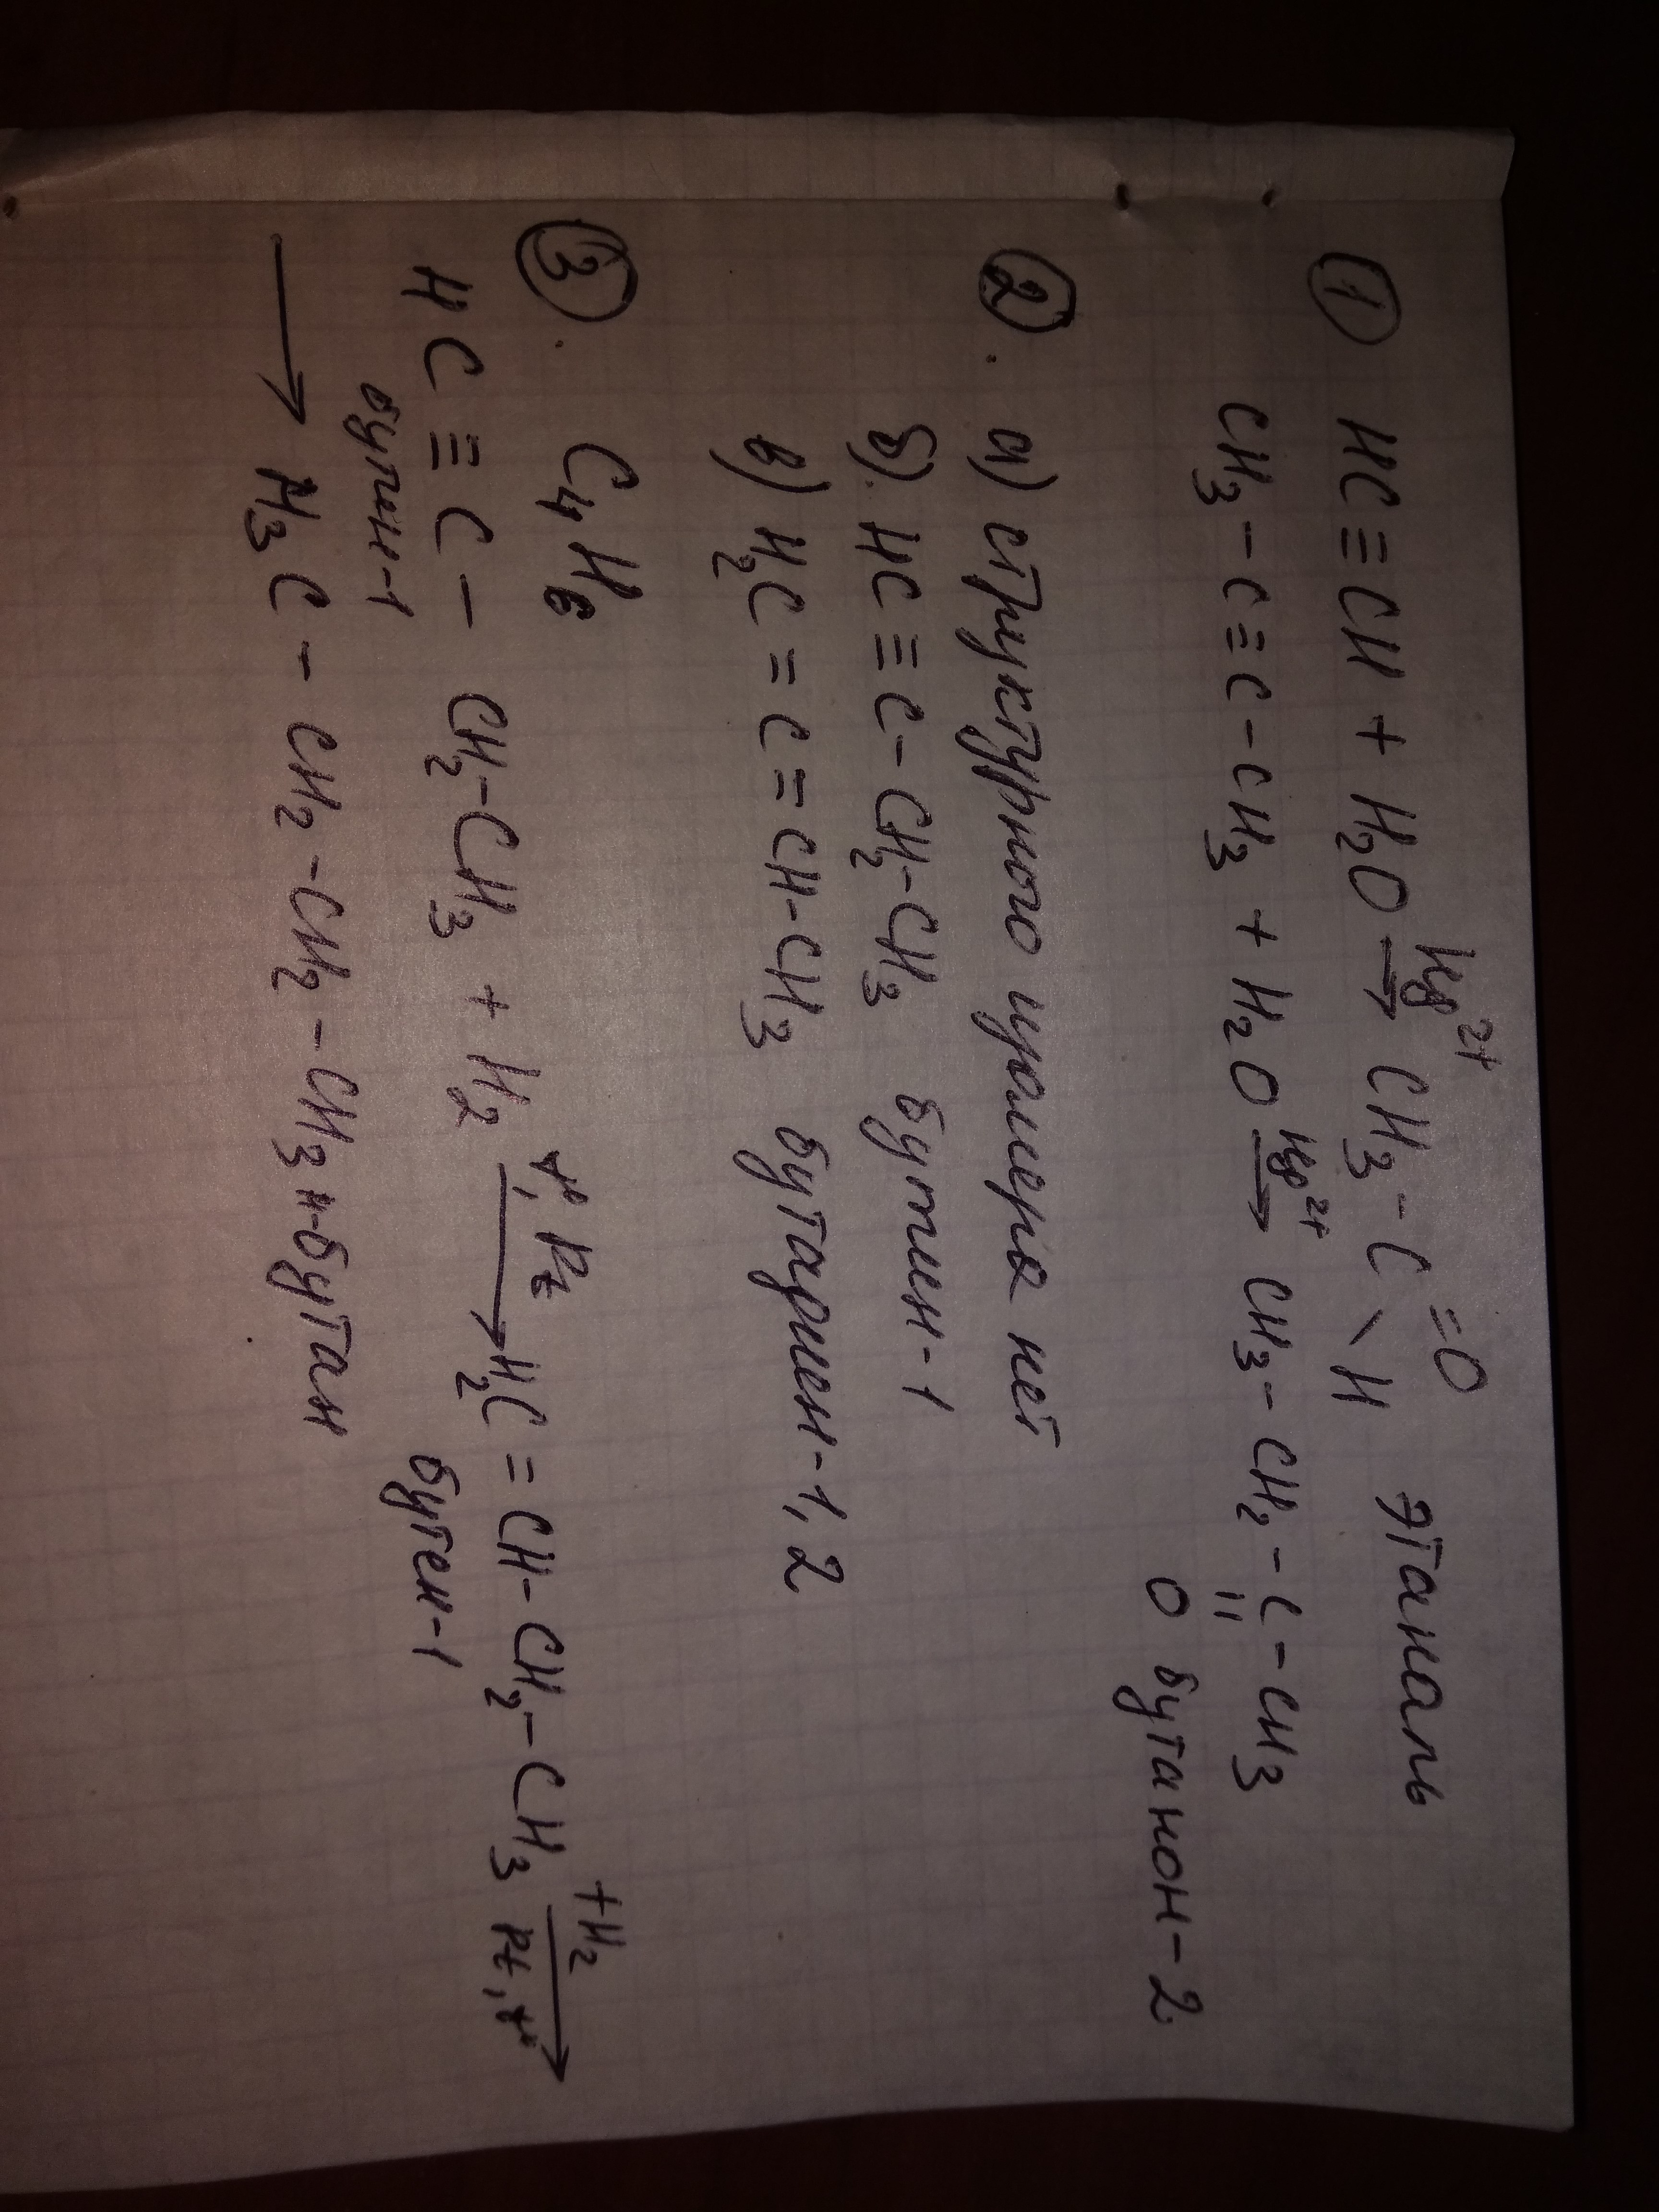 ① HC≡CH + H₂O →(Hg²⁺) CH₃–C(=O)\H этаналь
CH₃–C≡C–CH₃ + H₂O →(Hg²⁺) CH₃–CH₂–C(=O)–CH₃ бутанон-2
②. а) структурного изомера нет
б). HC≡C–CH₂–CH₃ бутин-1
в) H₂C=C=CH–CH₃ бутадиен-1,2
③. C₄H₆
HC≡C–CH₂–CH₃ + H₂ →(t°, Pt) H₂C=CH–CH₂–CH₃ →(+H₂ Pt, t°)
бутин-1 бутен-1
→ H₃C–CH₂–CH₂–CH₃ н-бутан